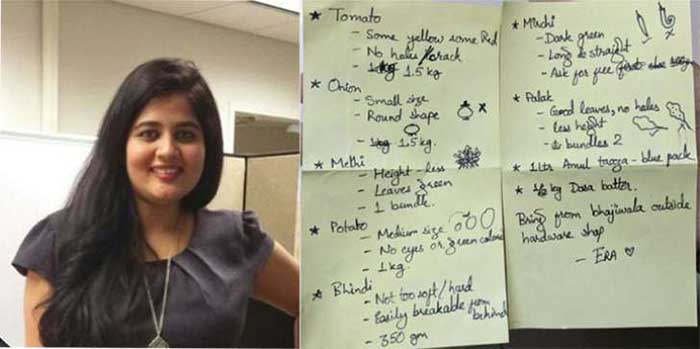 ★ Tomato
- Some yellow some Red
- No holes/crack
- 1.5 kg
★ Onion
- Small size
- Round shape
- 1.5 kg.
★ Methi
- Height - less
- Leaves green
- 1 bundle.
★ Potato
- Medium size
- No eyes or green colored
- 1 kg.
★ Bhindi
- Not too soft / hard
- Easily breakable from behind
- 350 gm
★ Mirchi
- Dark green
- Long & straight
- Ask for free
★ Palak
- Good leaves, no holes
- less height
- bundles 2
★ 1 ltr Amul taaza - blue pack
★ 1/2 kg Dosa batter.
Bring from bhajiwala outside
hardware shop
- ERA ♡